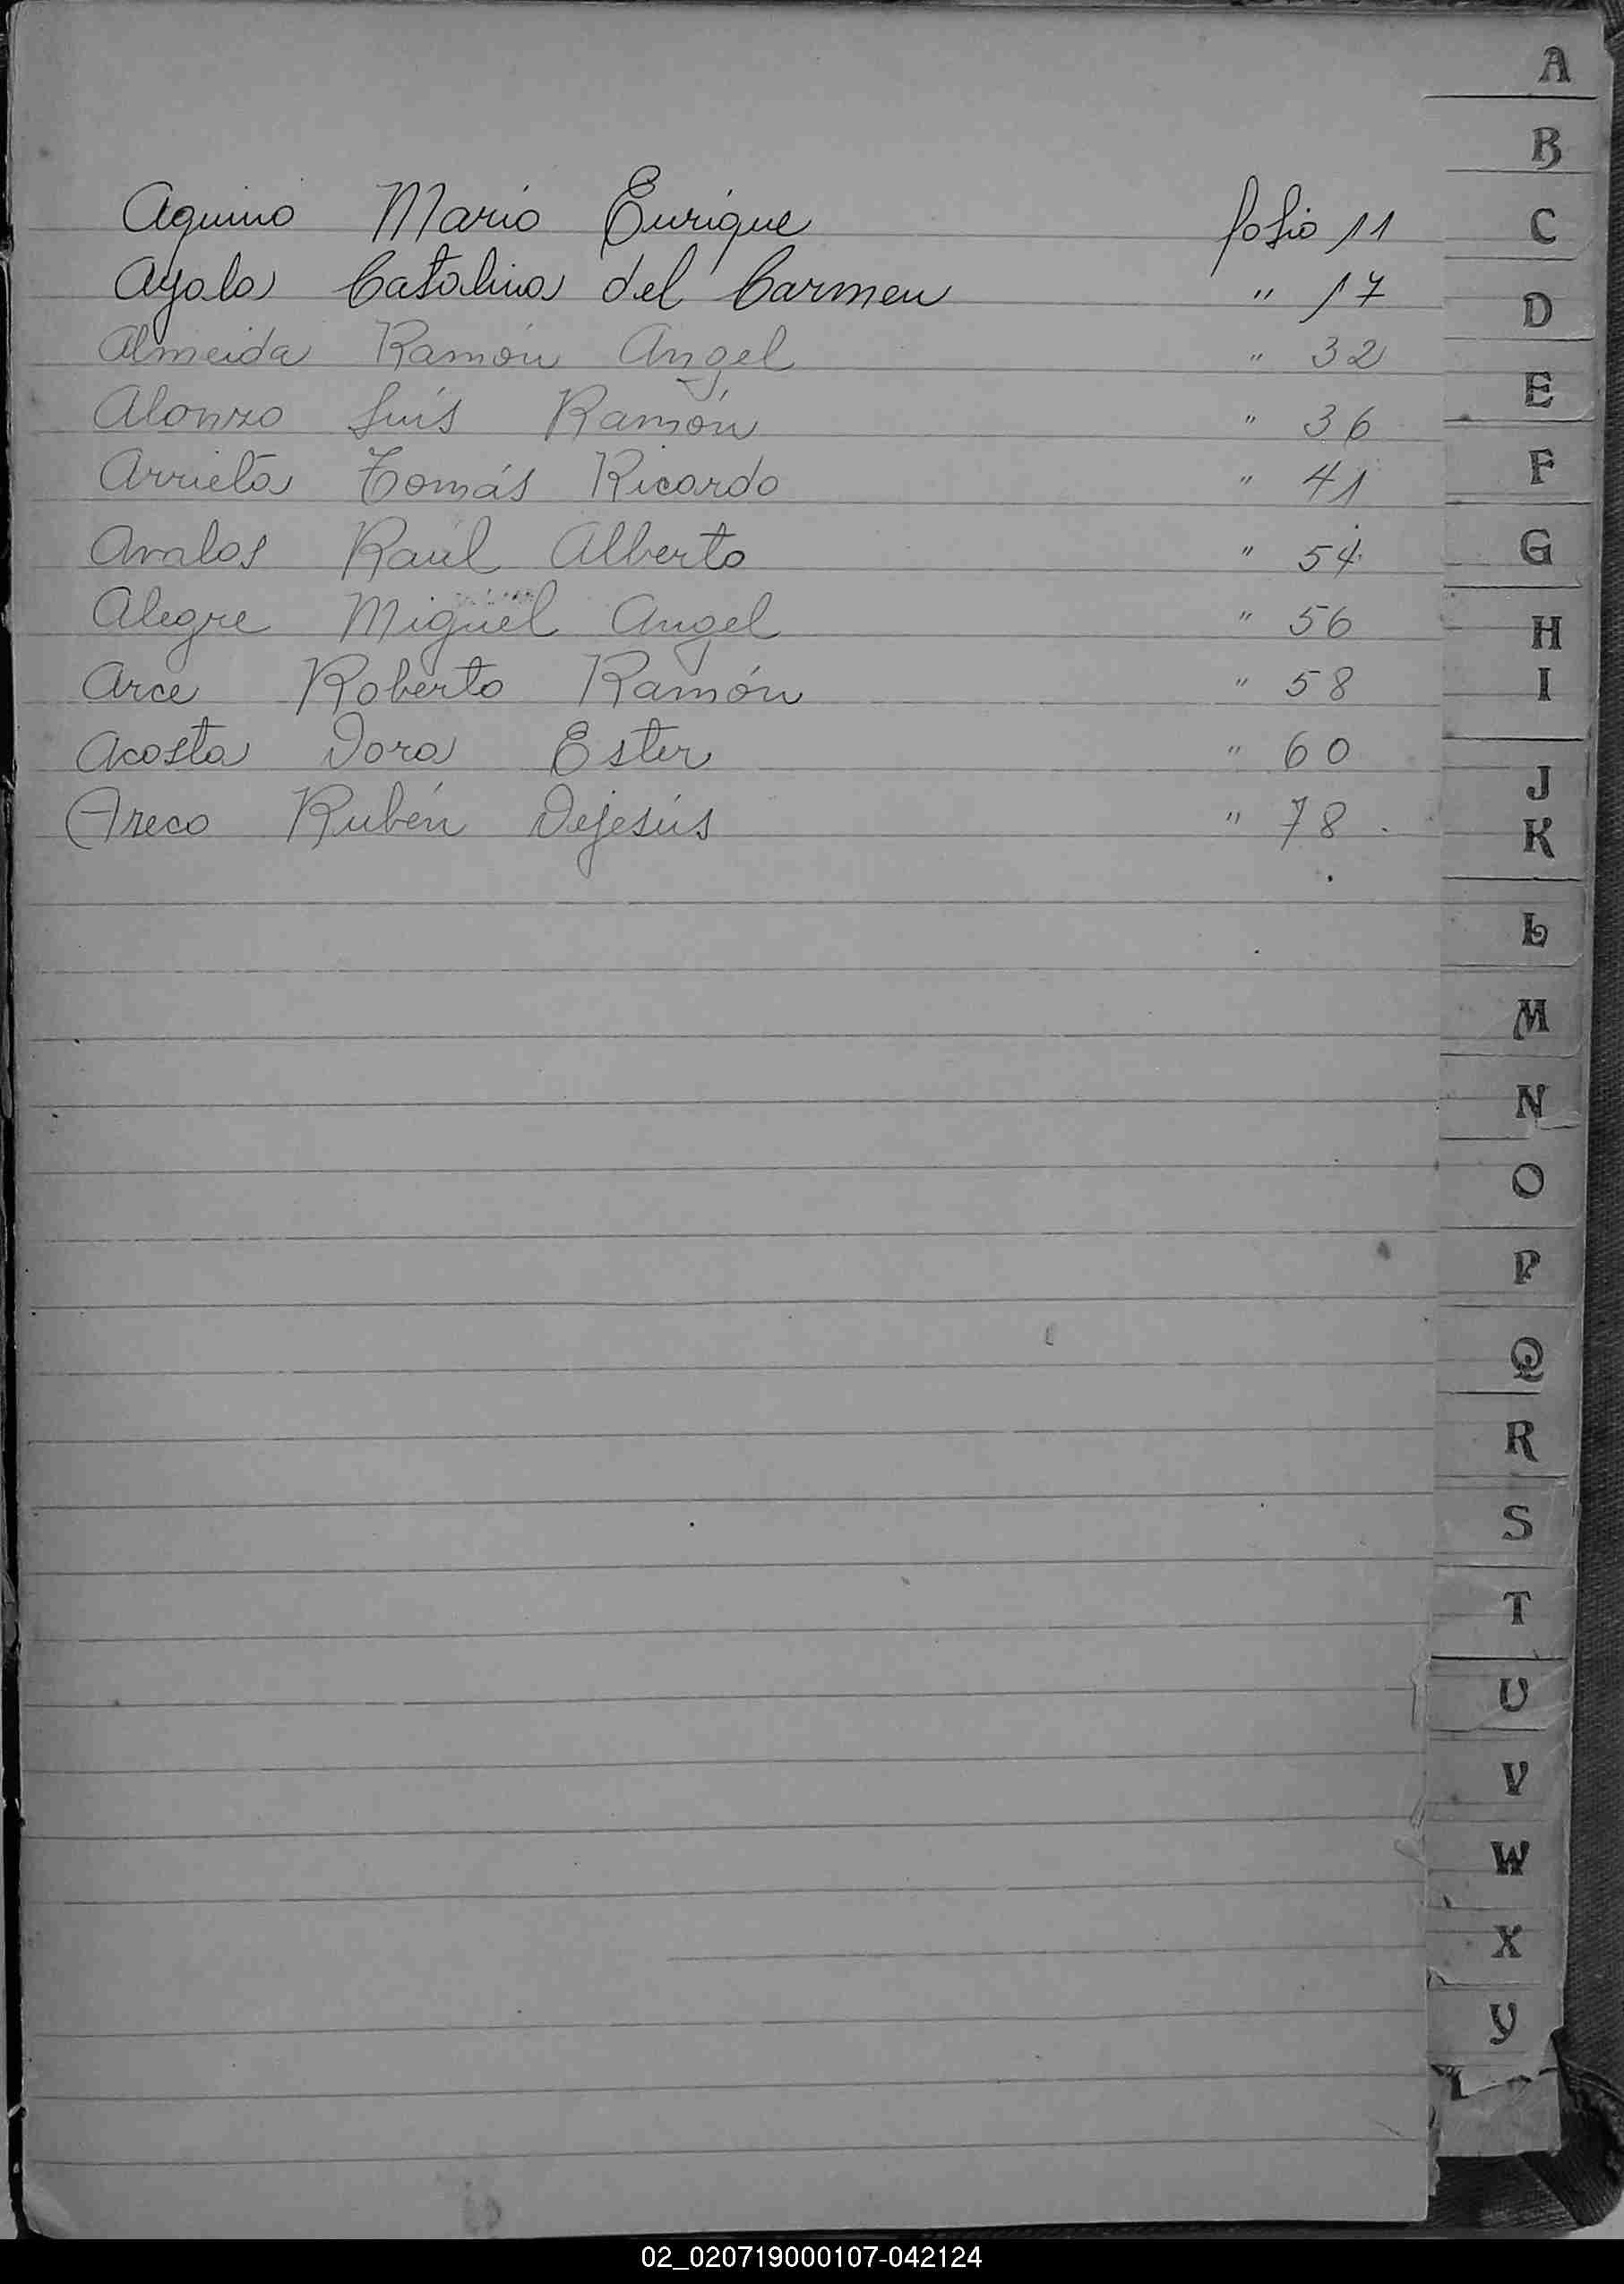 Aquino Mario Enrique folio 11
Ayala Catalina del Carmen " 17
Almeida Ramón Angel " 32
Alonzo Luís Ramón " 36
Arrieta Tomás Ricardo " 41
Avalos Raúl Alberto " 54
Alegre Miguel Angel " 56
Arce Roberto Ramón " 58
Acosta Dora Ester " 60
Areco Rubén Dejesús " 78
A
B
C
D
E
F
G
H
I
J
K
L
M
N
O
P
Q
R
S
T
U
V
W
X
Y
02_020719000107-042124